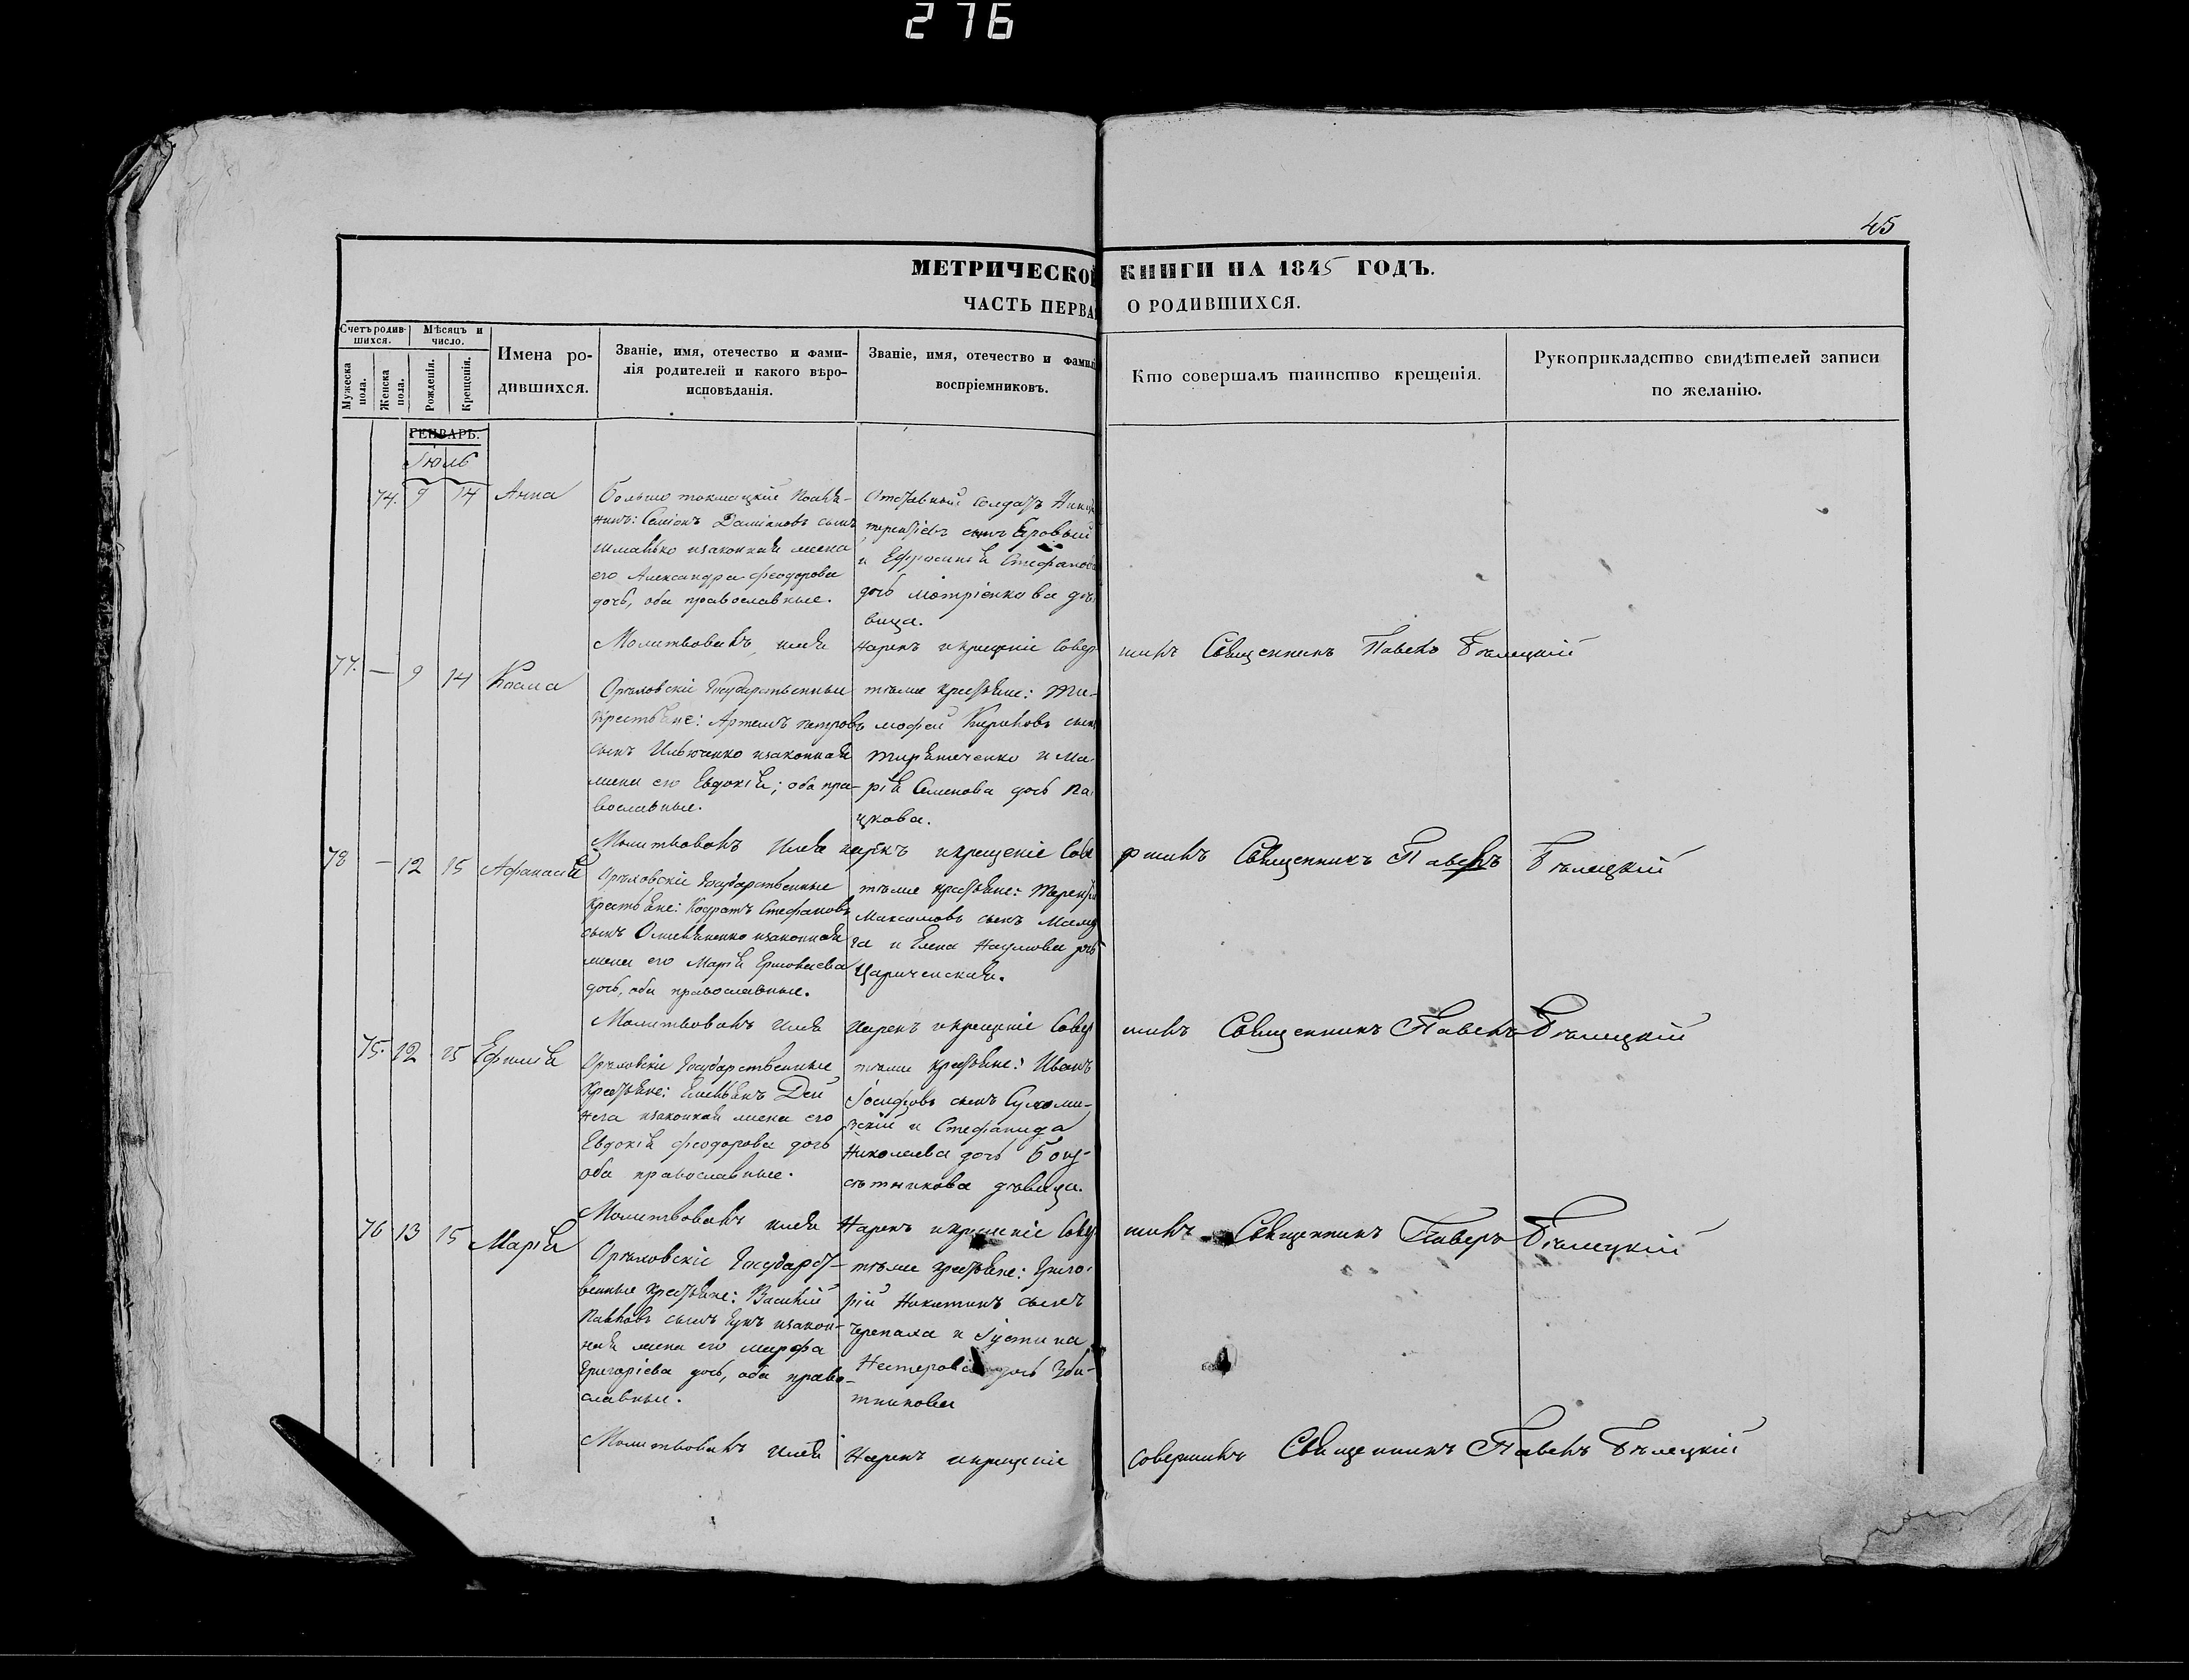 276
45
МЕТРИЧЕСКОЙ КНИГИ НА 1845 ГОДЪ.
ЧАСТЬ ПЕРВАЯ О РОДИВШИХСЯ.
Счетъ родив-
шихся.
Мужеска пола.
Женска пола.
Мѣсяцъ и
число.
Рожденія.
Крещенія.
Имена ро-
дившихся.
Званіе, имя, отечество и фами-
лія родителей и какого вѣро-
исповѣданія.
Званіе, имя, отечество и фамилі
воспріемниковъ.
Кто совершалъ таинство крещенія.
Рукоприкладство свидѣтелей записи
по желанію.
ГЕНВАРЬ.
Іюль
74. 9 14 Анна
Больше токмацкіе
Семіонъ Даміановъ сынъ
изаконная жена
его Александра Феодорова
дочь, оба православные.
Отставный солдатъ
сынъ
и Ефросинія Стефанова
дочь дѣ-
вица.
Молитвовалъ, имя нарекъ и крещеніе совер шилъ Священникъ Павелъ Бѣлецкій
77. — 9 14 Косма
Орѣховскіе Государственные
Крестьяне: Артемъ Петровъ
сынъ Ильченко изаконная
жена его Евдокія; оба пра-
вославные.
тѣже крестьяне: Ти-
мофей Кириловъ сынъ
и Ма-
рія Семенова дочь Па
цкова.
Молитвовалъ имя нарекъ и крещеніе сове ршилъ Священникъ Павелъ Бѣлецкій
78 — 12 15 Афанасій
Орѣховскіе Государственные
Крестьяне: Кодратъ Стефановъ
сынъ изаконная
жена его Марія
дочь, оба православные.
тѣже крестьяне: Терентій
Максимовъ сынъ
и Елена Наумова дочь
Цариченская.
Молитвовалъ имя нарекъ и крещеніе совер шилъ Священникъ Павелъ Бѣлецкій
75. 12 15 Ефимія
Орѣховскіе Государственные
Крестьяне: Емельянъ Дей
нега изаконная жена его
Евдокія Феодорова дочь
оба православные.
тѣже крестьяне: Иванъ
Іосифовъ сынъ Сухоми-
и Стефанида
Николаева дочь
дѣвица.
Молитвовалъ имя нарекъ и крещеніе совер шилъ Священникъ Павелъ Бѣлецкій
76 13 15 Марія
Орѣховскіе Государст-
венные крестьяне: Василій
Павловъ сынъ изакон-
ная жена его Марфа
Григоріева дочь, оба право-
славные.
тѣже крестьяне: Григо-
рій Никитинъ сынъ
Черепаха и Іустина
Нестерова дочь Зби-
тникова
Молитвовалъ имя нарекъ и крещеніе совершилъ Священникъ Павелъ Бѣлецкій